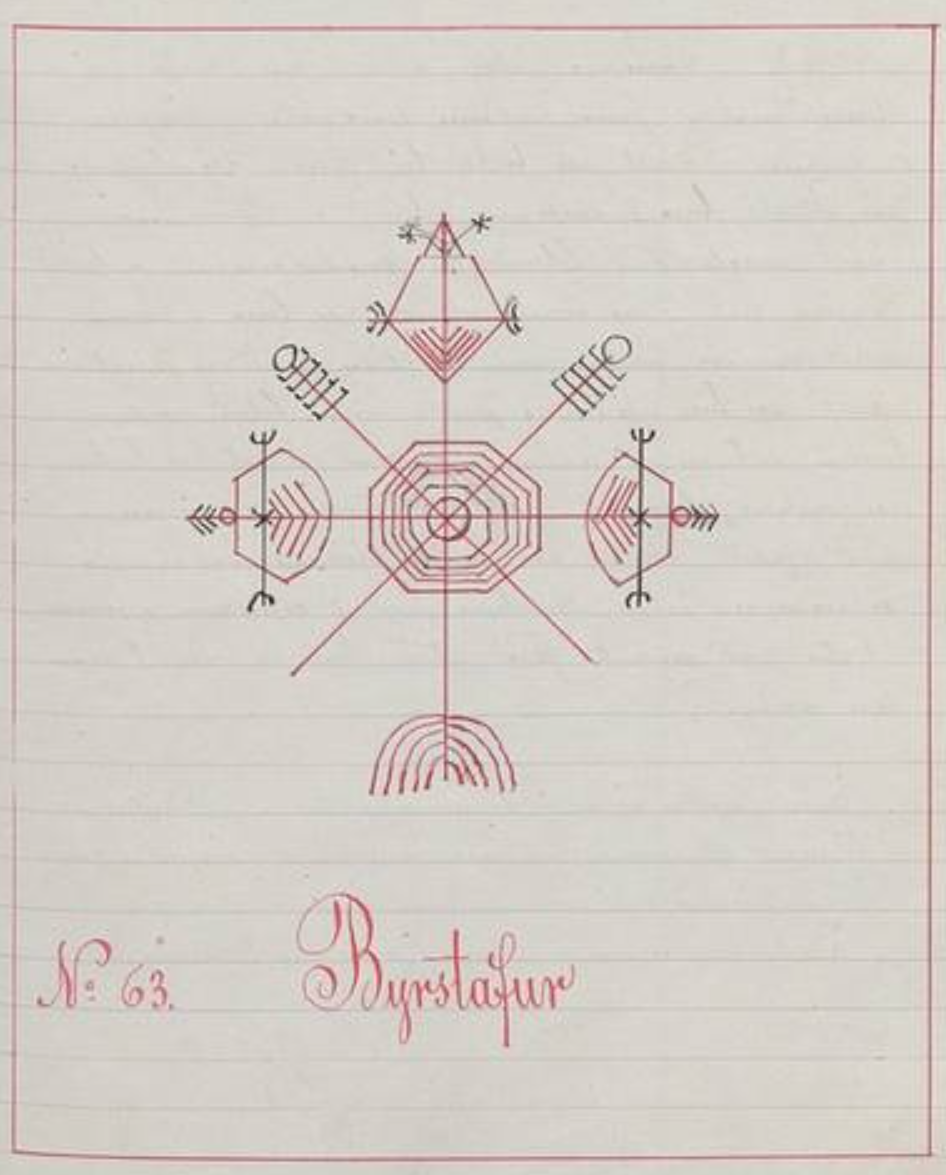 Nº 63. Byrstafur